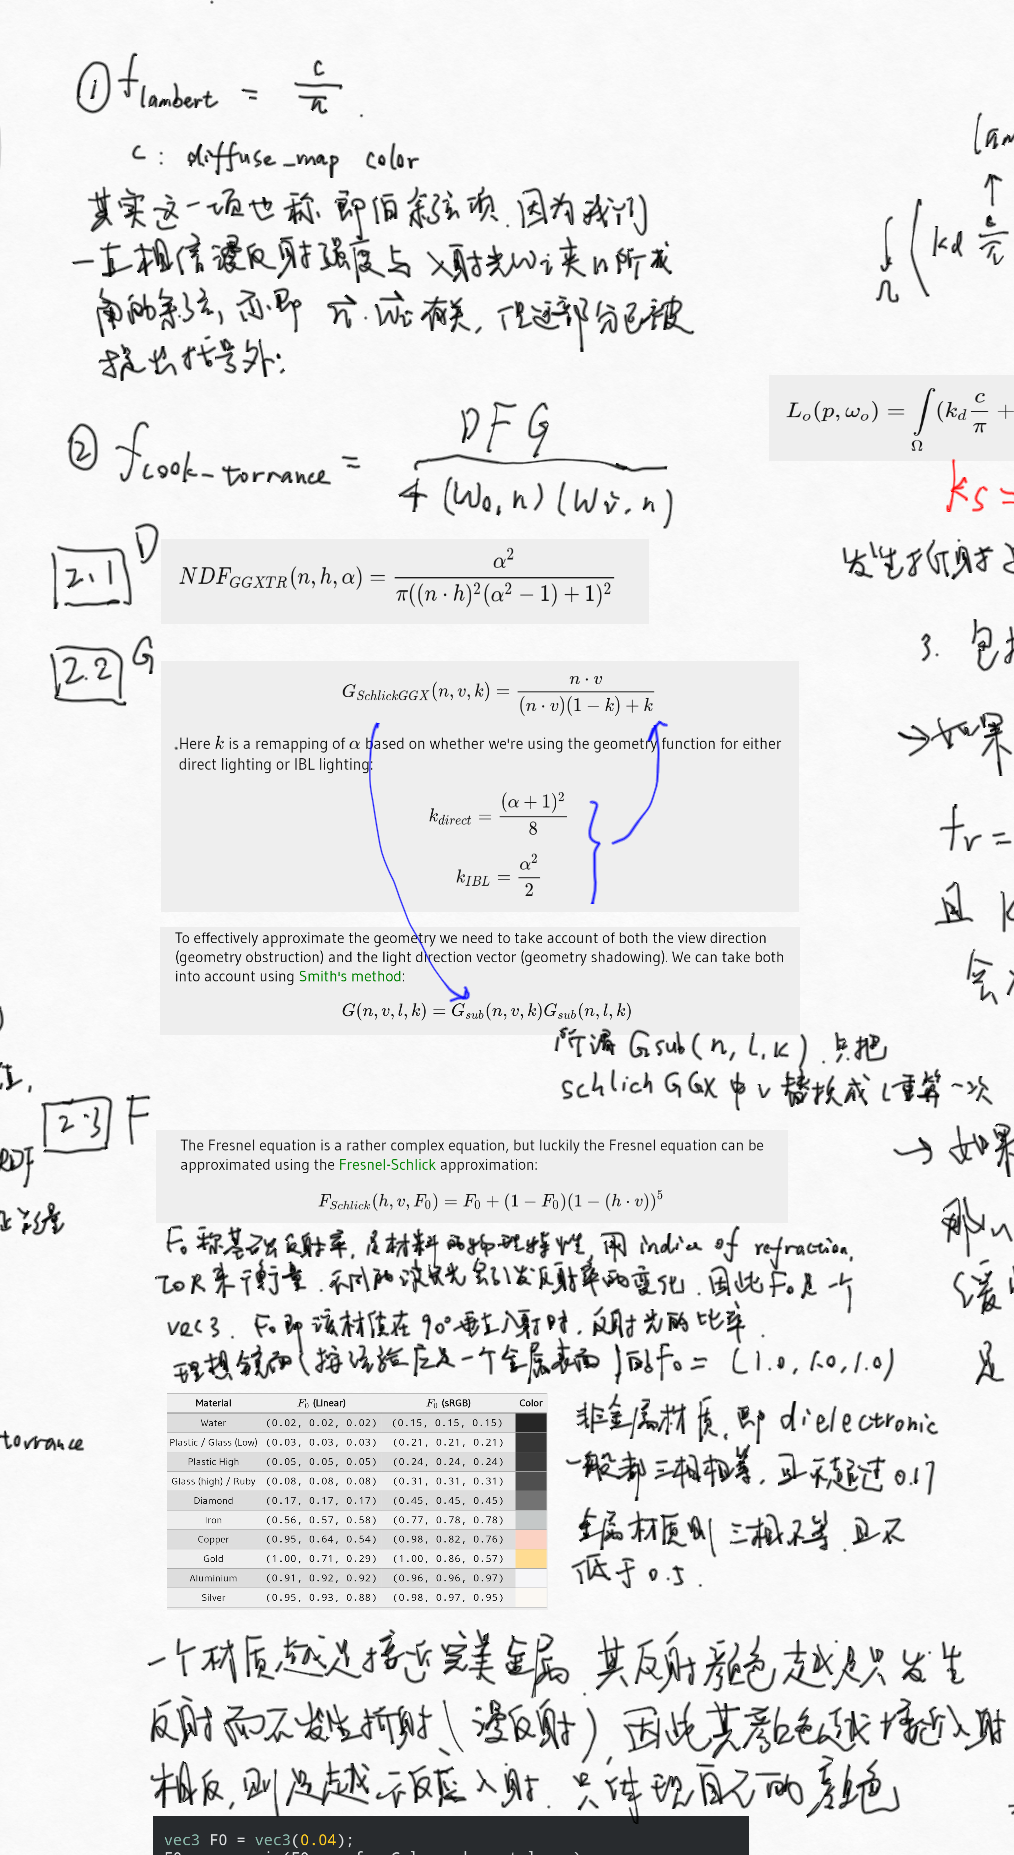 ① f lambert = c/π
c : diffuse_map color
其实这一项也称 即伯余弦项.因为我们
一直相信漫反射强度与入射光Wi夹n所成
角的余弦,亦即 n·Wi有关,但这部分已被
提出括号外;
② f cook-torrance = DFG / 4(Wo,n)(Wi,n)
2.1 D
NDF_GGXTR(n, h, α) = α² / π((n · h)²(α² − 1) + 1)²
2.2 G
G_SchlickGGX(n, v, k) = n · v / (n · v)(1 − k) + k
Here k is a remapping of α based on whether we're using the geometry function for either
direct lighting or IBL lighting:
k_direct = (α + 1)² / 8
k_IBL = α² / 2
To effectively approximate the geometry we need to take account of both the view direction
(geometry obstruction) and the light direction vector (geometry shadowing). We can take both
into account using Smith's method:
G(n, v, l, k) = G_sub(n, v, k)G_sub(n, l, k)
所谓 Gsub(n, l, k) 只把
schlich GGX 中 v 替换成 l 重算一次
2.3 F
The Fresnel equation is a rather complex equation, but luckily the Fresnel equation can be
approximated using the Fresnel-Schlick approximation:
F_Schlick(h, v, F₀) = F₀ + (1 − F₀)(1 − (h · v))⁵
F₀称基础反射率,是材料的物理特性,用 indice of refraction,
IOR来衡量.不同的波长光会引发反射率的变化.因此F₀是个
vec3. F₀即该材质在90°垂直入射时,反射光的比率.
理想镜面(按经验应是一个金属表面)的F₀=(1.0, 1.0, 1.0)
Material F₀ (Linear) F₀ (sRGB) Color
Water (0.02, 0.02, 0.02) (0.15, 0.15, 0.15)
Plastic / Glass (Low) (0.03, 0.03, 0.03) (0.21, 0.21, 0.21)
Plastic High (0.05, 0.05, 0.05) (0.24, 0.24, 0.24)
Glass (high) / Ruby (0.08, 0.08, 0.08) (0.31, 0.31, 0.31)
Diamond (0.17, 0.17, 0.17) (0.45, 0.45, 0.45)
Iron (0.56, 0.57, 0.58) (0.77, 0.78, 0.78)
Copper (0.95, 0.64, 0.54) (0.98, 0.82, 0.76)
Gold (1.00, 0.71, 0.29) (1.00, 0.86, 0.57)
Aluminium (0.91, 0.92, 0.92) (0.96, 0.96, 0.97)
Silver (0.95, 0.93, 0.88) (0.98, 0.97, 0.95)
非金属材质,即 dielectronic
一般都三相相等,且不超过0.17
金属材质则三相不等.且不
低于0.5.
一个材质越是接近完美金属.其反射颜色越是只发生
反射而不发生折射(漫反射),因此其颜色越接近入射
相反,则是越不反应入射.只体现自己的颜色
vec3 F0 = vec3(0.04);
L_o(p, ω_o) = ∫_Ω (k_d c/π +
∫_Ω ( kd c/π
ks =
发生折射
3. 包
→如果
fr =
且 k
会
→ 如果
那
是
torrance